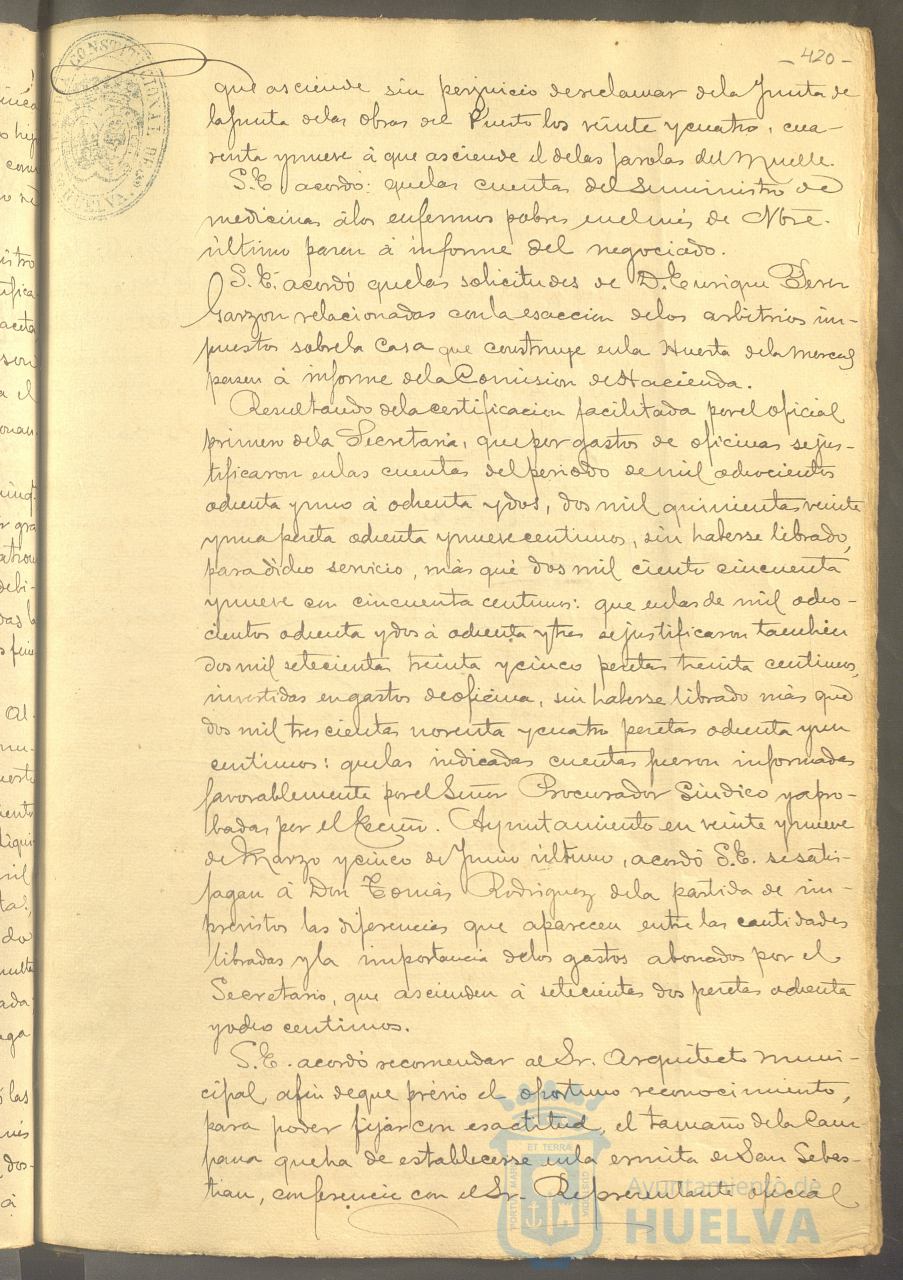 - 420 -
que asciende sin perjuicio de reclamar de la Junta de
la Junta de las Obras del Puerto los veinte y cuatro, cua-
renta y nueve á que asciende el de las farolas del Muelle.
S.E. acordó: que las cuentas del suministro de
medicinas á los enfermos pobres en el mes de Nbre.
último pasen á informe del negociado.
S.E. acordó que las solicitudes de D. Enrique Perez
Garzon relacionadas con la esaccion de los arbitrios im-
puestos sobre la Casa que construye en la Huerta de la Merced
pasen á informe de la Comision de Hacienda.
Resultando de la certificacion facilitada por el oficial
primero de la Secretaria, que por gastos de oficinas se jus-
tificaron en las cuentas del periodo de mil ochocientos
ochenta y uno á ochenta y dos, dos mil quinientas veinte
y una peseta ochenta y nueve centimos, sin haberse librado,
para dicho servicio, más que dos mil ciento cincuenta
y nueve con cincuenta centimos: que en las de mil ocho-
cientos ochenta y dos á ochenta y tres se justificaron tambien
dos mil setecientas treinta y cinco pesetas treinta centimos,
invertidas en gastos de oficina, sin haberse librado más que
dos mil trescientas noventa y cuatro pesetas ochenta y un
centimos: que las indicadas cuentas fueron informadas
favorablemente por el Señor Procurador Síndico y apro-
badas por el Excmo. Ayuntamiento en veinte y nueve
de Marzo y cinco de Junio último, acordó S.E. se satis-
fagan á Don Tomás Rodriguez de la partida de im-
previstos las diferencias que aparecen entre las cantidades
libradas y la importancia de los gastos abonados por el
Secretario, que ascienden á setecientas dos pesetas ochenta
y ocho centimos.
S.E. acordó recomendar al Sr. Arquitecto muni-
cipal, afin de que prévio el oportuno reconocimiento,
para poder fijar con esactitud, el tamaño de la Cam-
pana que ha de establecerse en la ermita de San Sebas-
tian, conferencie con el Sr. Representante oficial
ET TERRÆ
Ayuntamiento de
HUELVA